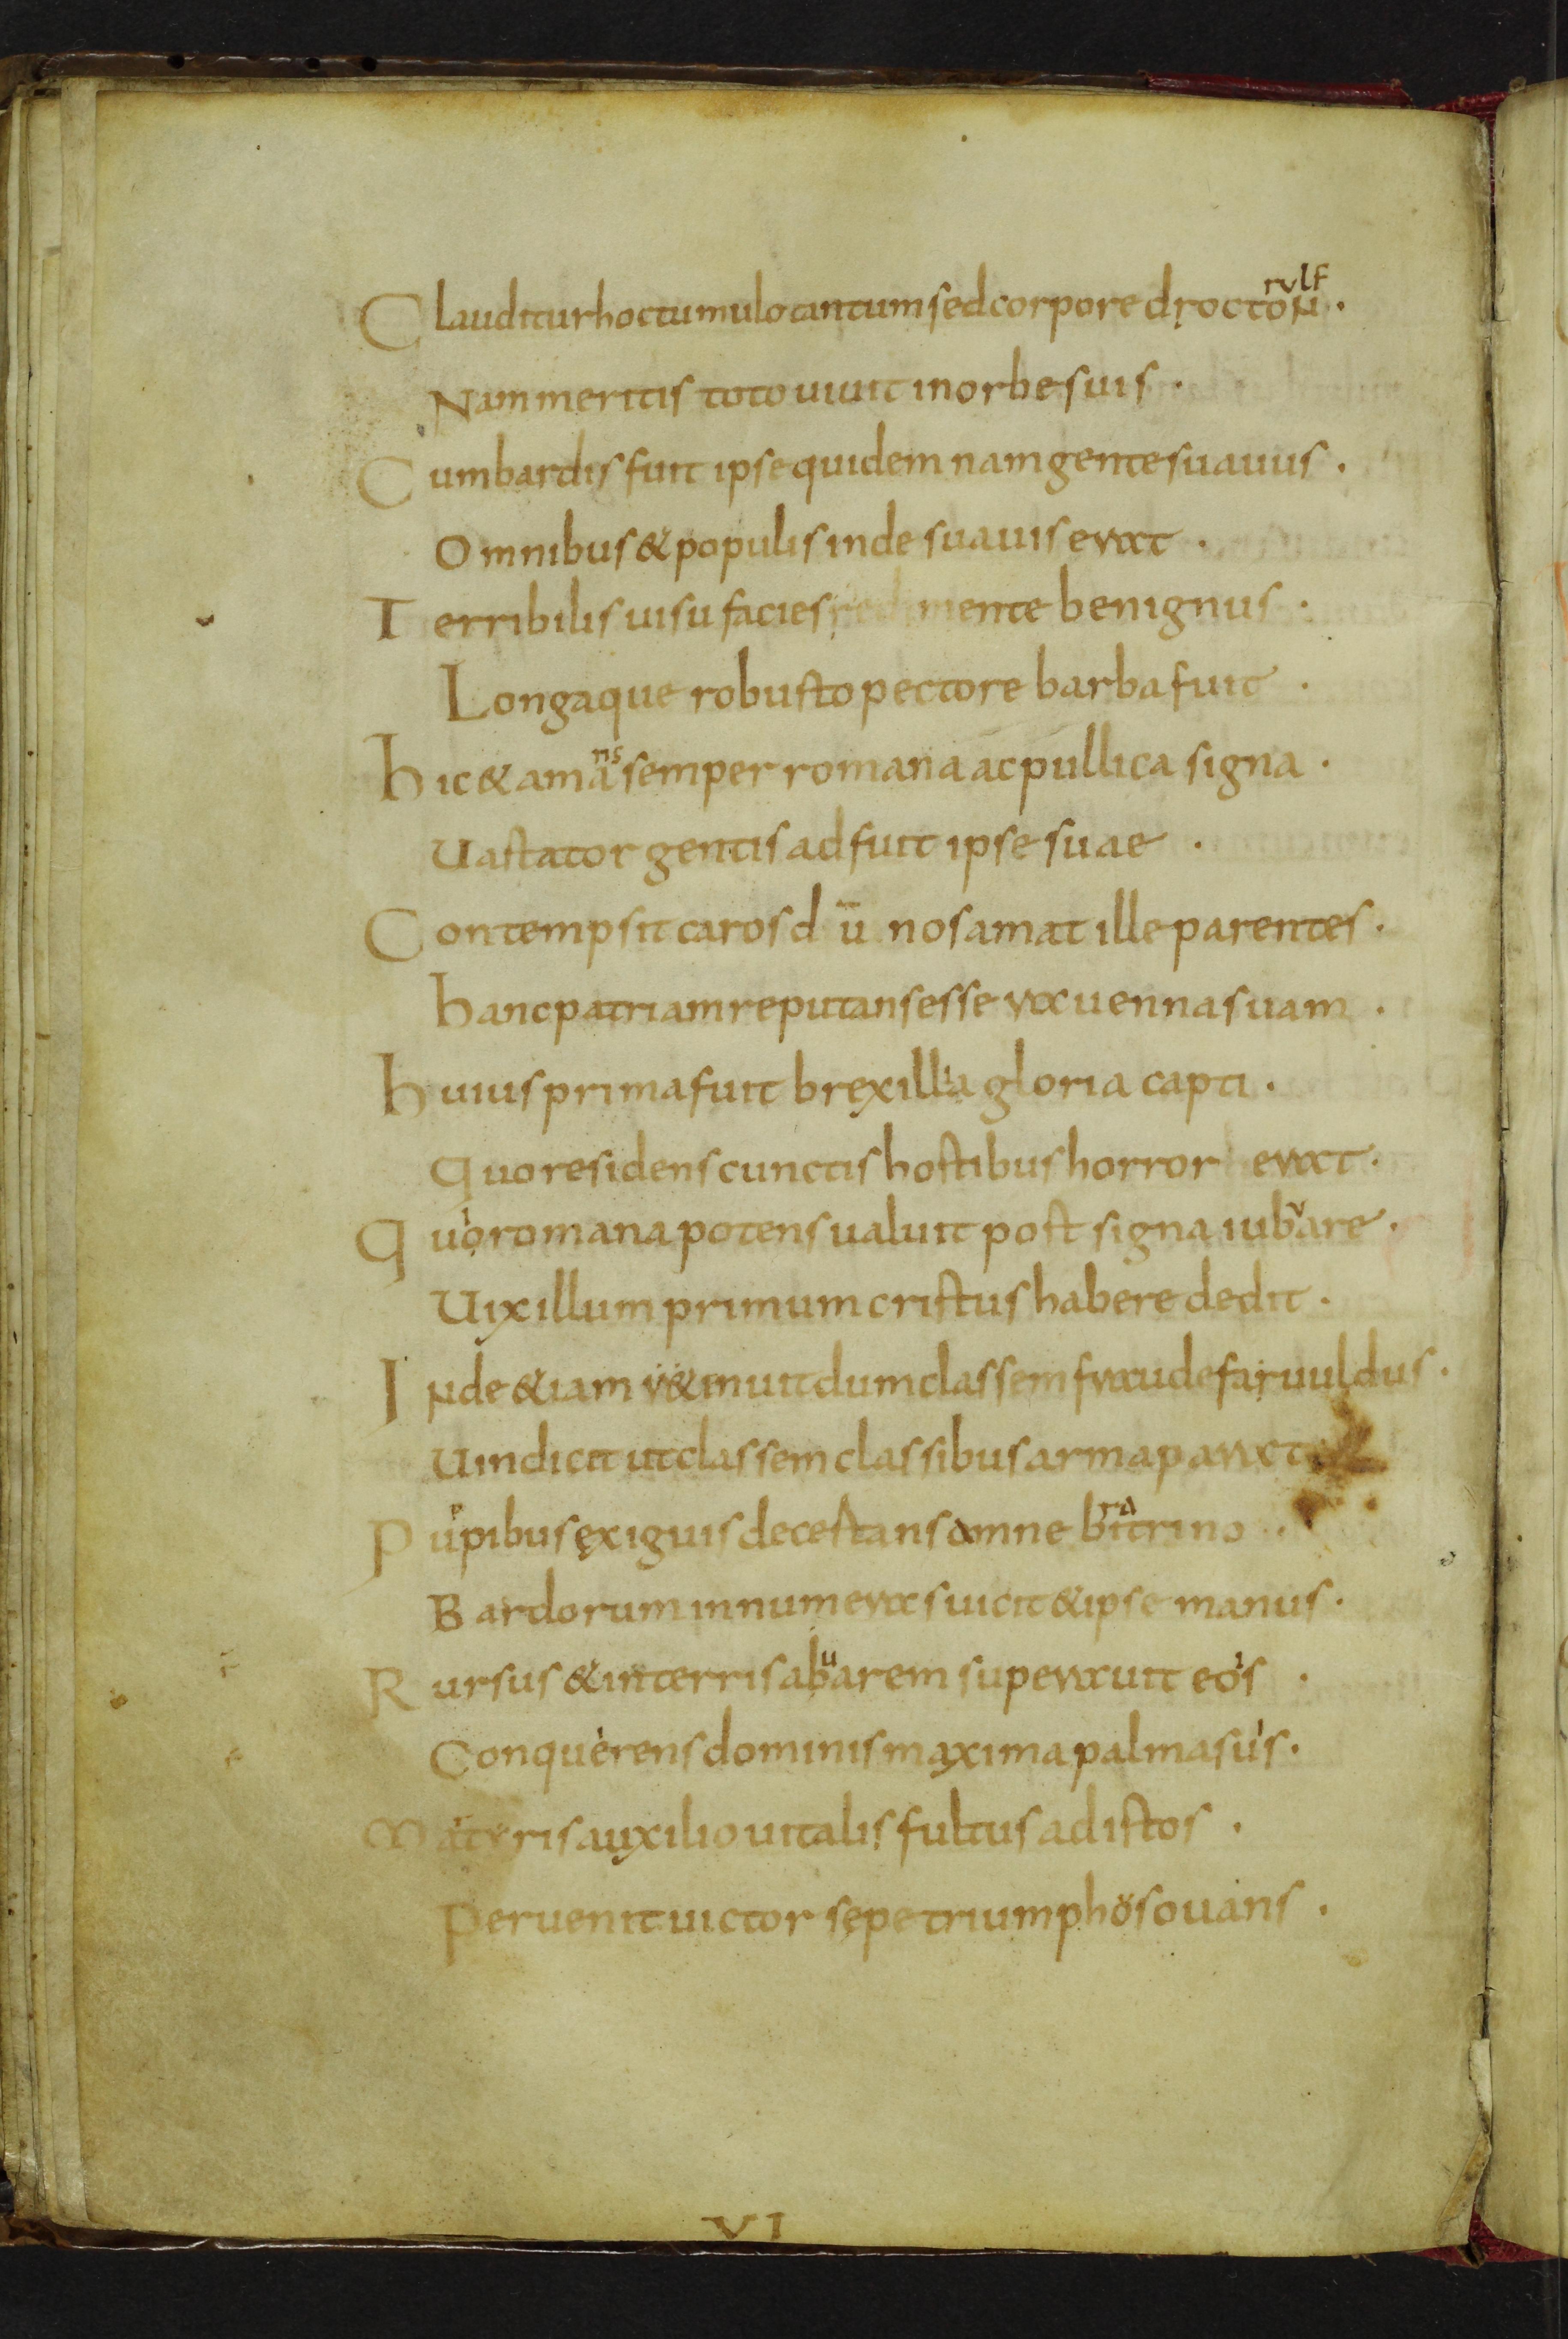 Clauditur hoc tumulo tantum sed corpore droctorulf.
Nam meritis toto uiuit in orbe suis.
Cum bardis fuit ipse quidem nam gente suauus.
Omnibus & populis inde suauis erat.
Terribilis uisu facies sed mente benignus.
Longaque robusto pectore barba fuit.
hic & amans semper romana ac pullica signa.
Uastator gentis adfuit ipse suae.
Contempsit caros dū nos amat ille parentes.
hanc patriam reputans esse rauenna suam.
huius prima fuit brexillia gloria capti.
Quo residens cunctis hostibus horror erat.
Quo romana potens ualuit post signa iubare.
Uixillum primum cristus habere dedit.
Inde &iam r&inuit dum classem fraude faruuldus.
Uindicit ut classem classibus arma parat
Puppibus exiguis decestans amne bitrino.
Bardorum innumeras uicit & ipse manus.
Rursus & in terris abuarem superauit eois.
Conquerens dominis maxima palma suis.
Martyris auxilio uitalis fultus ad istos.
Peruenit uictor sepe triumphos ouans.
VI